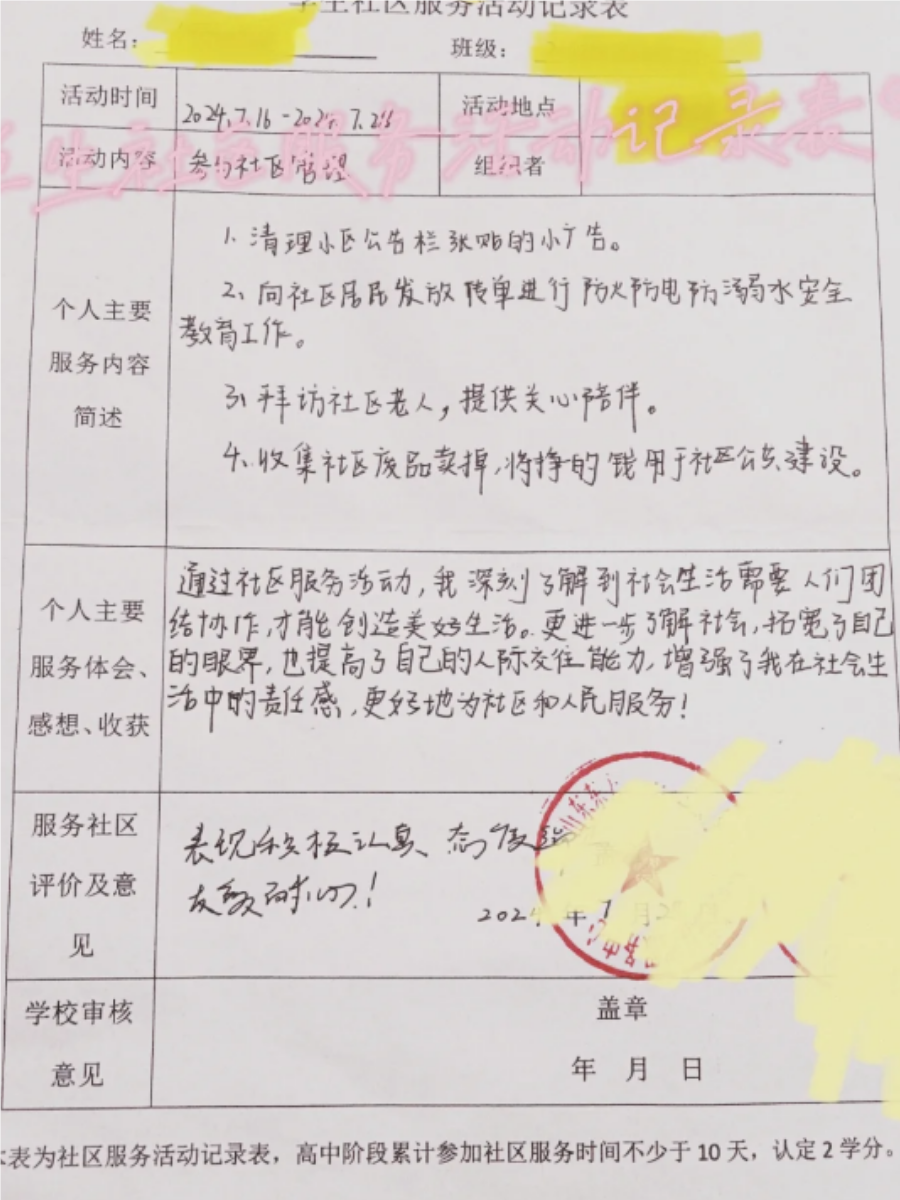 学生社区服务活动记录表
姓名：
班级：
活动时间
2024.7.16-2024.7.26
活动地点
学生社区服务活动记录表
活动内容
参与社区管理
组织者
个人主要
服务内容
简述
1、清理小区公告栏张贴的小广告。
2、向社区居民发放传单进行防火防电防溺水安全
教育工作。
3、拜访社区老人，提供关心陪伴。
4、收集社区废品卖掉，将挣的钱用于社区公共建设。
个人主要
服务体会、
感想、收获
通过社区服务活动，我深刻了解到社会生活需要人们团
结协作，才能创造美好生活。更进一步了解社会，拓宽了自己
的眼界，也提高了自己的人际交往能力，增强了我在社会生
活中的责任感，更好地为社区和人民服务！
服务社区
评价及意
见
表现积极认真、态度
友善耐心！
2024年7月
山东东
学校审核
意见
盖章
年 月 日
本表为社区服务活动记录表，高中阶段累计参加社区服务时间不少于10天，认定2学分。